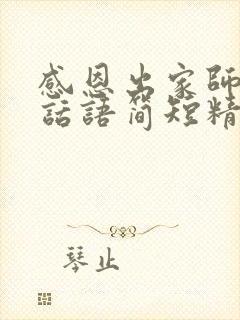 感恩出家師
話語简短精
琴止